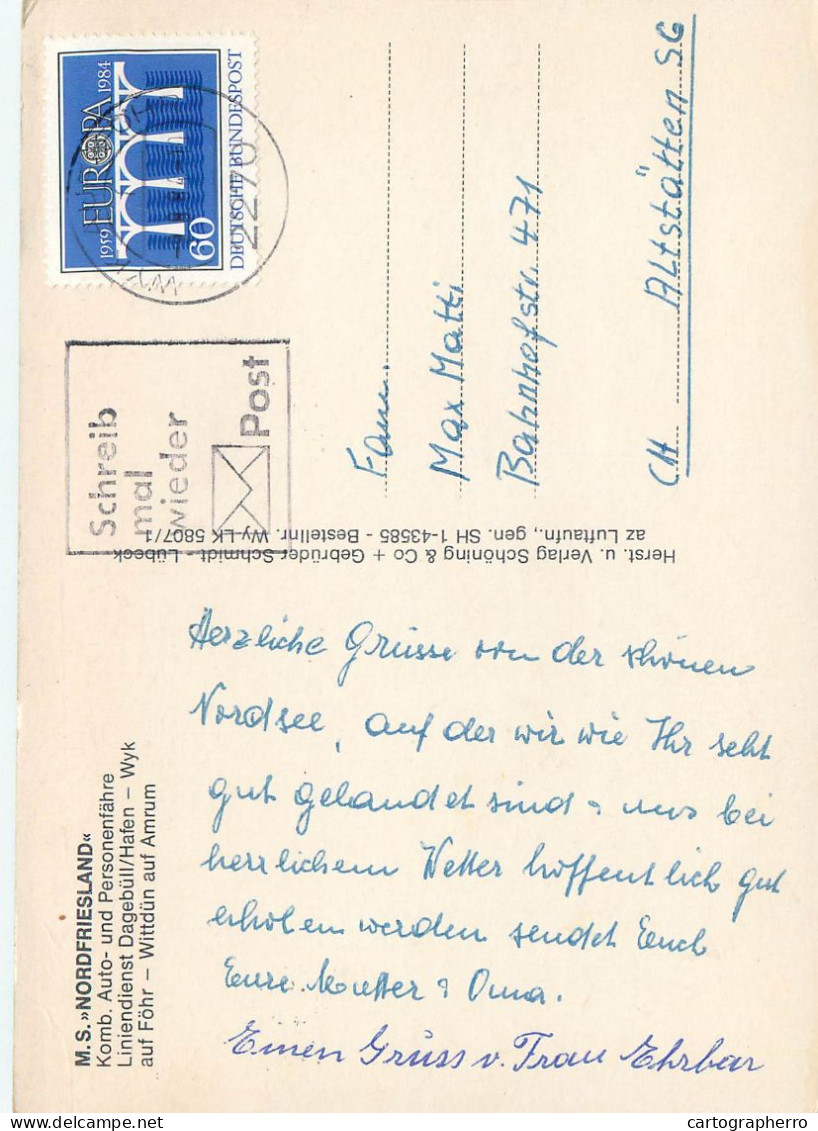 M.S. »NORDFRIESLAND«
Komb. Auto- und Personenfähre
Liniendienst Dagebüll/Hafen – Wyk
auf Föhr – Wittdün auf Amrum
Herzliche Grüsse von der schönen
Nordsee, auf der wir wie Ihr seht
gut gelandet sind & uns bei
herrlichem Wetter hoffentlich gut
erholen werden sendet Euch
Eure Mutter & Oma.
Einen Gruss v. Frau Ehrbar
Herst. u. Verlag Schöning & Co + Gebrüder Schmidt - Lübeck
az Luftaufn., gen. SH 1-43585 - Bestellnr. Wy LK 5807/1
Schreib
mal
wieder
Post
1959 EUROPA 1984
60
DEUTSCHE BUNDESPOST
2270
Fam.
Max Matti
Bahnhofstr. 471
CH Altstätten SG
cartographerro